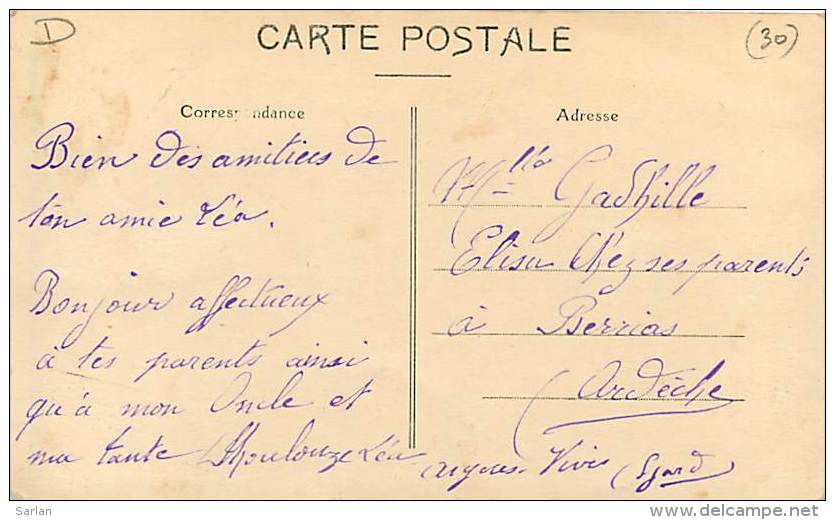 D
CARTE POSTALE
(30)
Correspondance
Bien des amitiées de
ton amie Léa.
Bonjour affectueux
à tes parents ainsi
qu'à mon Oncle et
ma tante Léa
Adresse
Mlle
Elisa Chez ses parents
à Berrias
Ardèche
Vives (Gard)
Sarlan
delcampe.net